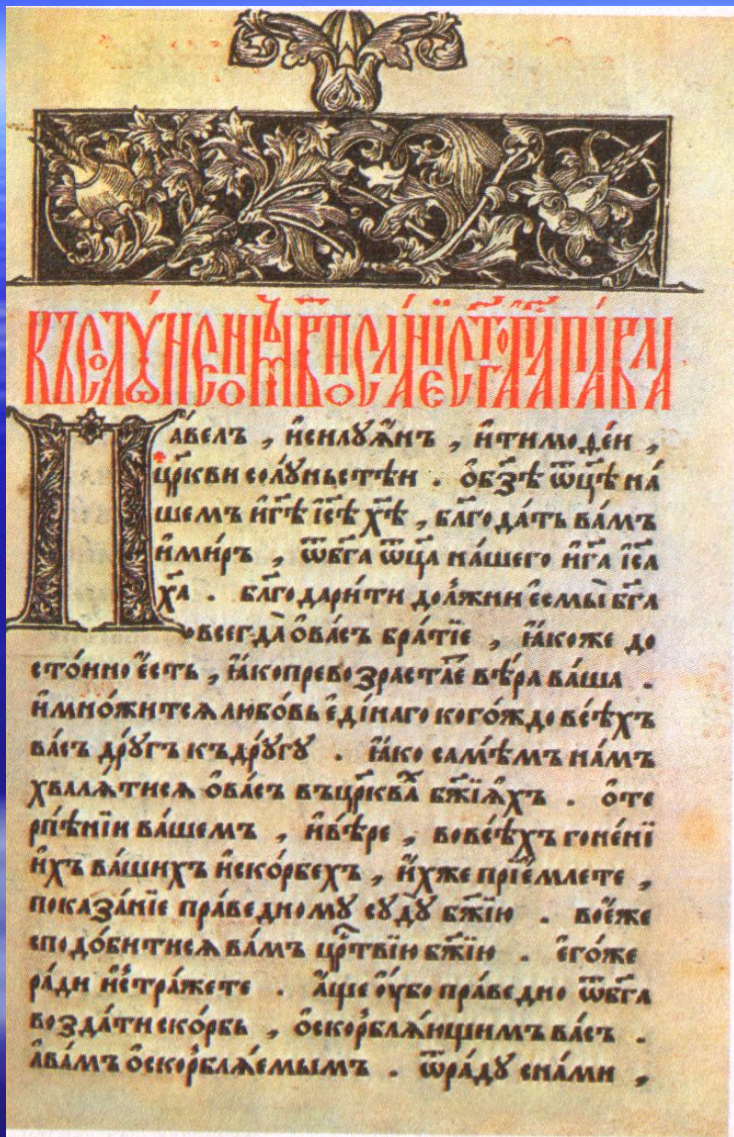 Къ солꙋ́нѧномъ в҃ посла́нїе ст҃о́го ап҃ла па́вла
Па́велъ , и҆силꙋа́нъ , и҆тимоѳе́й ,
цр҃кви солꙋ́ньстѣй . ѻ҆бз҃ѣ ѿц҃ѣ на́
шемъ и҆гдⷭ҇ѣ і҆с҃ѣ хрⷭ҇тѣ , блг҃ода́ть ва́мъ
и҆ми́ръ , ѿбг҃а ѿц҃а на́шего и҆гдⷭ҇а і҆с҃а
хрⷭ҇та . блг҃одари́ти до́лжни є҆смы̀ бг҃а
всегда̀ ѻ҆ва́съ бра́тїе , ꙗ҆́коже до
сто́йно є҆́сть , ꙗ҆́копревозраста́е вѣ́ра ва́ша .
и҆мно́житсѧ любо́вь є҆ді́наго кого́ждо всѣ́хъ
ва́съ дрꙋ́гъ къдрꙋ́гꙋ . ꙗ҆́ко самѣ́мъ на́мъ
хвалѧ́тисѧ ѻ҆ва́съ въцр҃ква бж҃їѧхъ . ѻ҆те
рпѣ́нїи ва́шемъ , и҆вѣ́ре , вовсѣ́хъ гоне́нї
и҆хъ ва́шихъ и҆ско́рбехъ , и҆́хже прїе́млете ,
показа́нїе пра́ведномꙋ сꙋдꙋ̀ бж҃їю . воє҆́же
сподо́битисѧ ва́мъ црⷭ҇твїю бж҃їю . є҆гѡ́же
ра́ди и҆стра́жете . а҆́ще ᲂу҆́бо пра́ведно ѿбг҃а
возда́ти ско́рбь , ѻ҆скорблѧ́ющимъ ва́съ .
а҆ва́мъ ѻ҆скорблѧ́емымъ . ѿра́дꙋ сна́ми ,